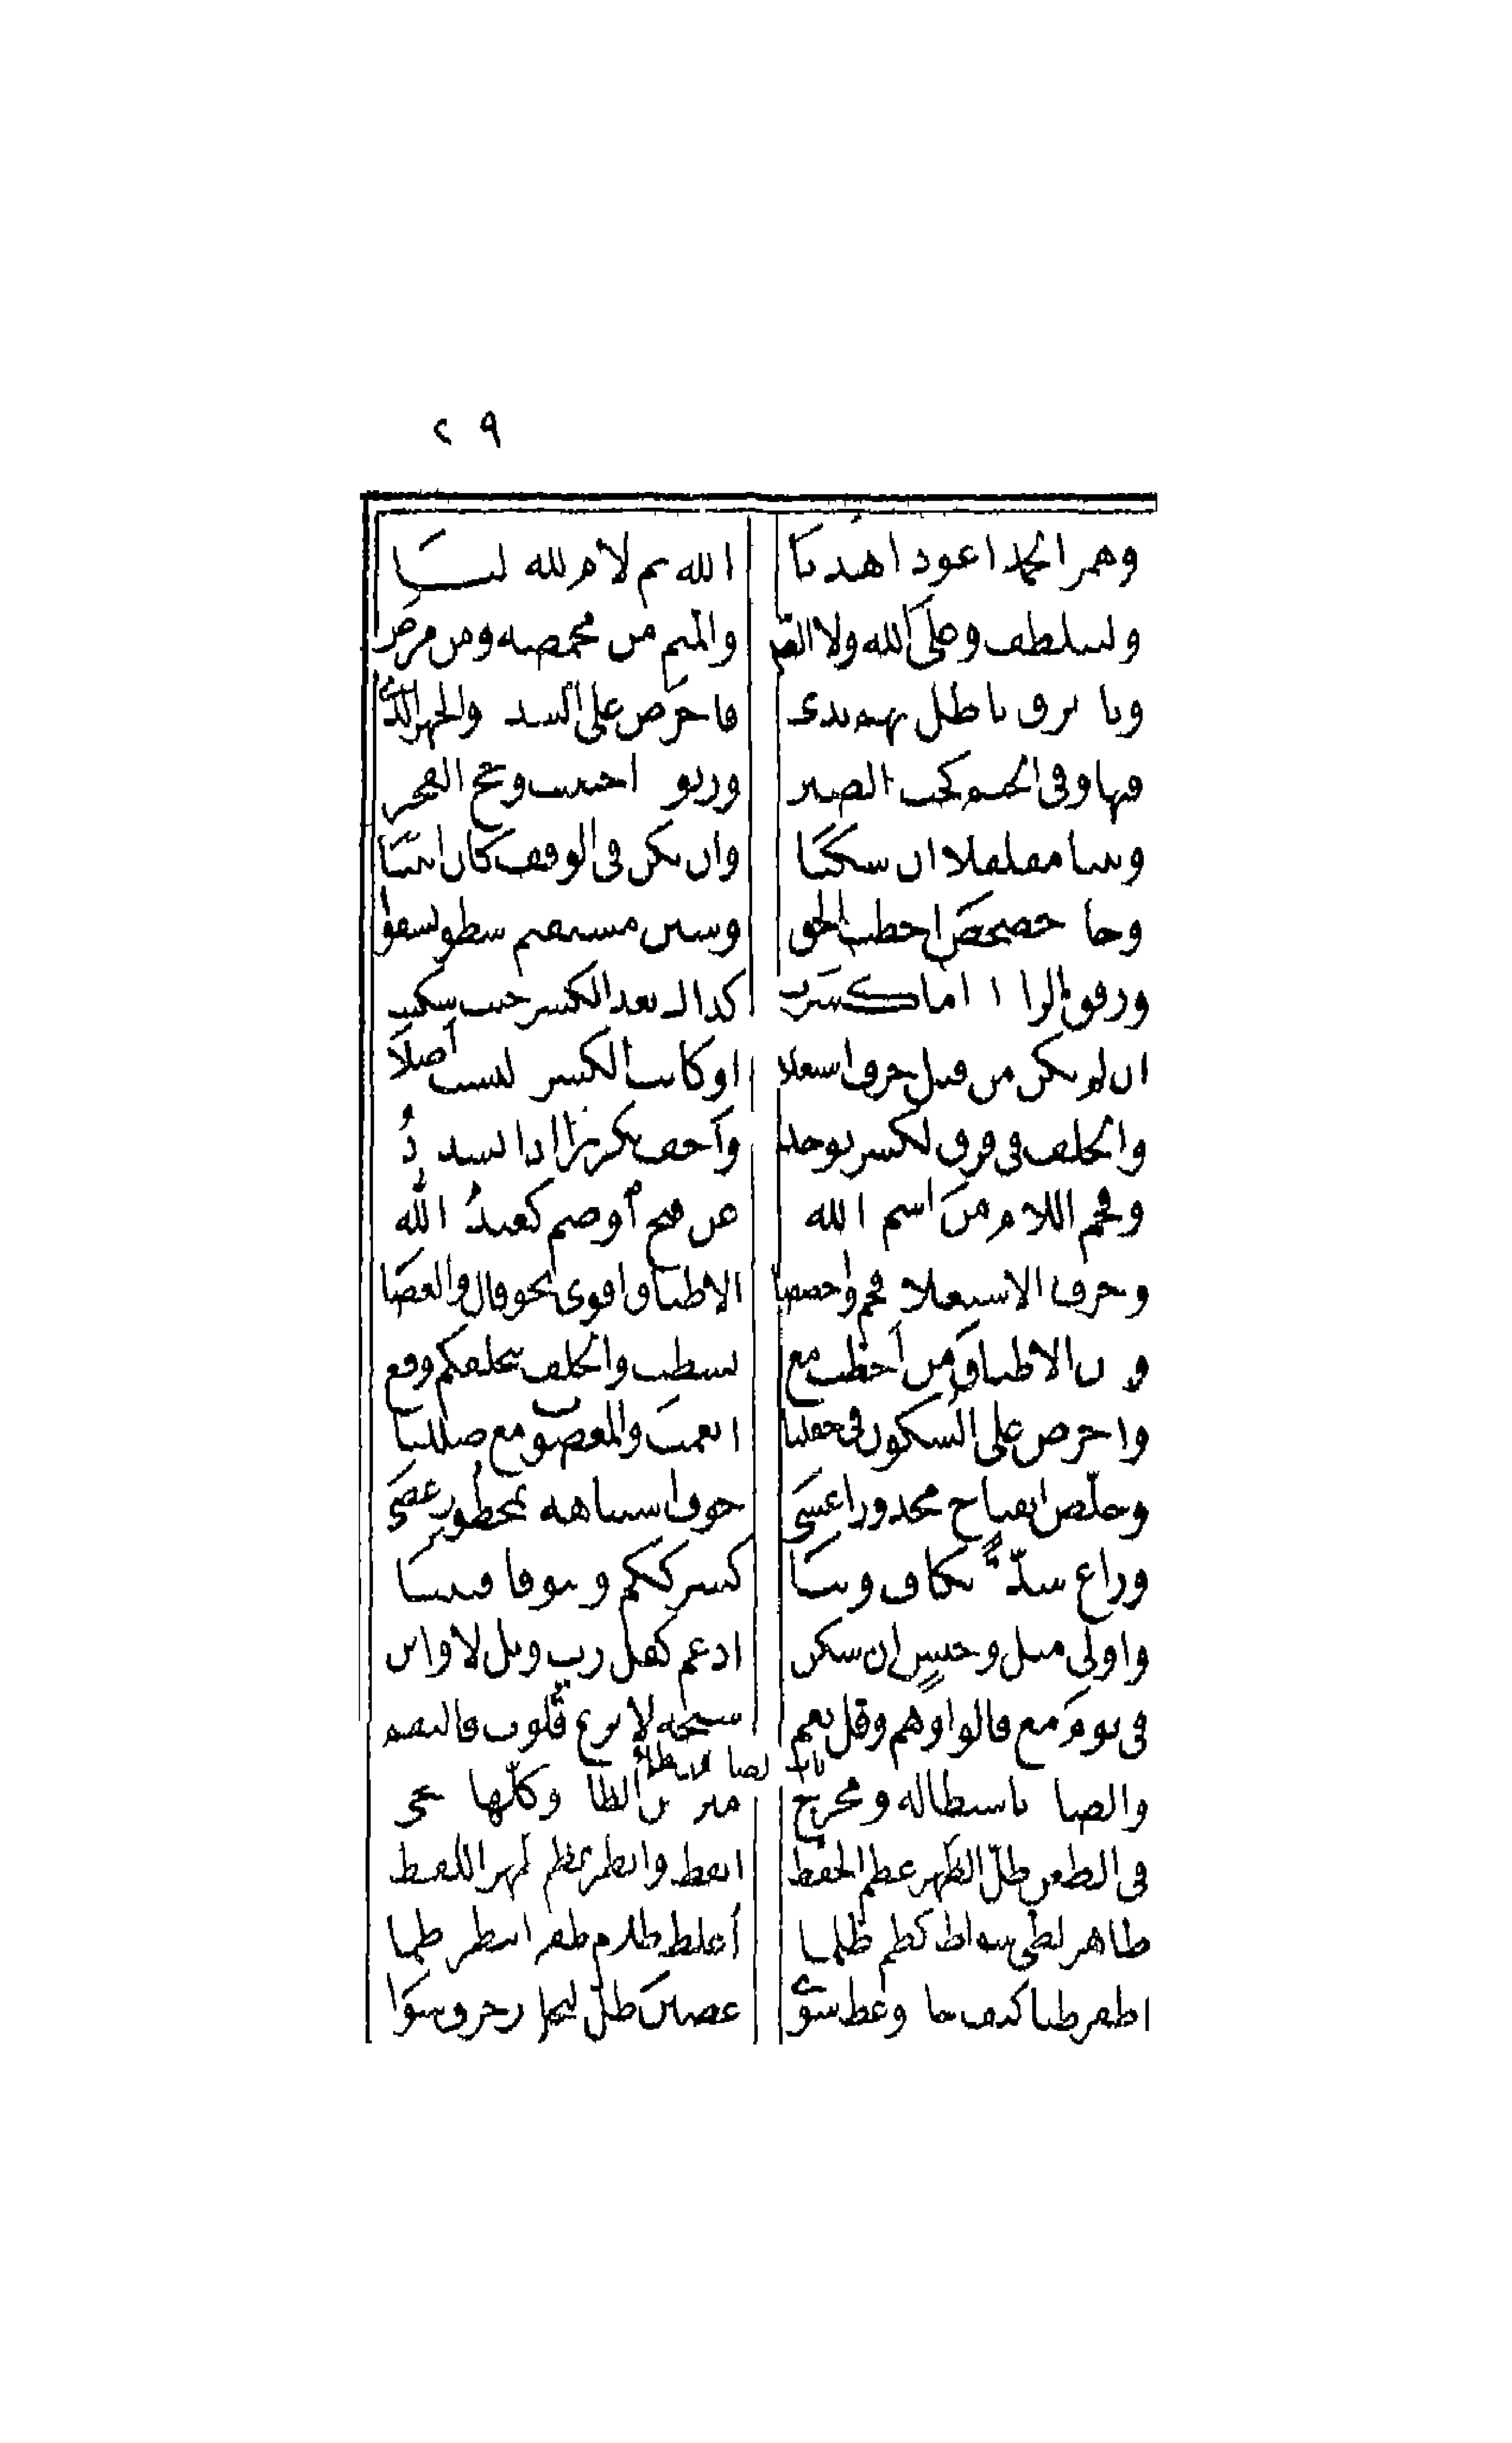 ٢٩
وهمز الحمد اعوذ اهدنا الله ثم لام لله لنا
وليتلطف وعلى الله ولا الض والميم من مخمصة ومن مرض
وبا برق باطل بهم بذي فاحرص على الشدة والجهر الذي
فيها وفى الجيم كحب الصبر وربوة اجتثت وحج الفجر
وبينا مقلقلا ان سكنا وان يكن فى الوقف كان ابينا
وحا حصحص احطت الحق وسين مستقيم يسطو يسقوا
ورقق الرا اذا ما كسرت كذاك بعد الكسر حيث سكنت
ان لم يكن من قبل حرف استعلا او كانت الكسر ليست أصلا
والخلف فى فرق لكسر يوجد وأخف تكريرا اذا تشدد
وفخم اللام من اسم الله عن فتح أو ضم كعبدُ الله
وحرف الاستعلاء فخم واخصصا الاطباق اقوى نحو قال والعصا
وبين الاطباق من أحطت مع بسطت والخلف بنخلقكم وقع
واحرص على السكون فى جعلنا انعمت والمغضوب مع ضللنا
وخلّص انفتاح محذورا عسى خوف اشتباهه بمحظورا عصى
وراع شدّة بكاف وبتا كشرككم وتتوفا فتنتا
واولى مثل وجنس ان سكن ادغم كقل رب وبل لا وابن
فى يوم مع قالوا وهم وقل نعم سبحه لا تزغ قلوب فالتقم
والضاد باستطالة ومخرج ميز من الظا وكلها تجي
فى الظعن ظلّ الظهر عظم الحفظ ايقظ وانظر عظم ظهر اللفظ
ظاهر لظى شواظ كظم ظلما أغلظ ظلام ظفر انتظر ظما
اظفر ظنا كيف جا وعظ سوى عضين ظلّ النحل زخرف سوا